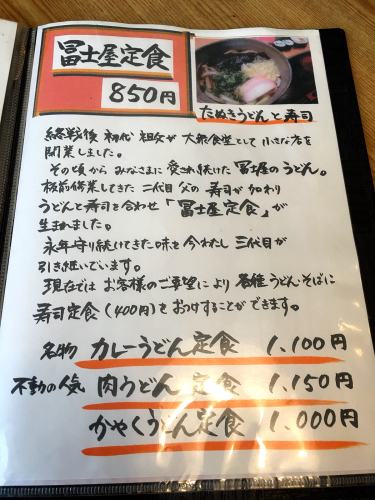 冨士屋定食
850円
たぬきうどんと寿司
終戦後 初代 祖父が 大衆食堂として 小さな店を
開業しました。
その頃から みなさまに 愛され続けた 冨士屋の うどん。
板前修業してきた 二代目 父の 寿司が 加わり
うどんと 寿司を 合わせ 「冨士屋定食」が
生まれました。
永年守り続けてきた味を 今わたし 三代目が
引き継いでいます。
現在では お客様の ご要望により 各種 うどん・そばに
寿司定食 (400円) を おつけすることができます。
名物 カレーうどん定食 1,100円
不動の人気 肉うどん定食 1,150円
かやくうどん定食 1,000円